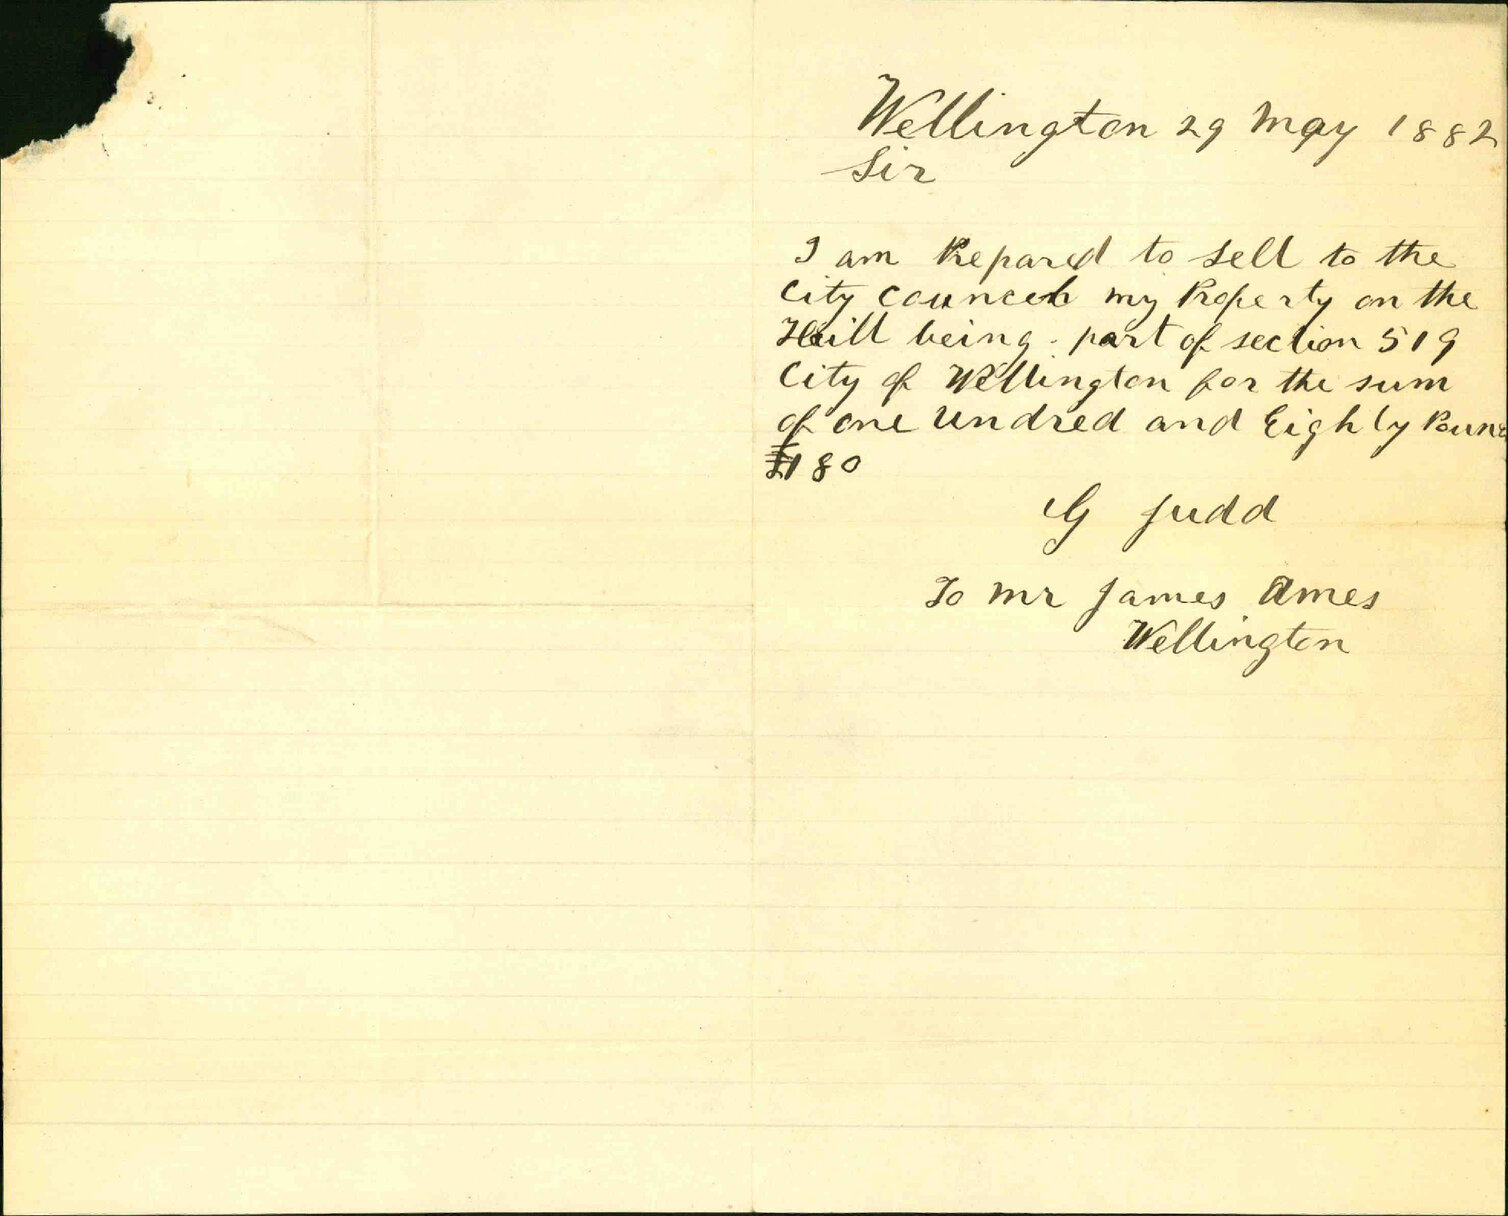 Wellington 29 May 1882
Sir
I am Prepared to Sell to the
City Council my Property on the
Hill being part of section 519
City of Wellington for the sum
of one Undred and Eighty Pound
£180
G Judd
To Mr James Ames
Wellington